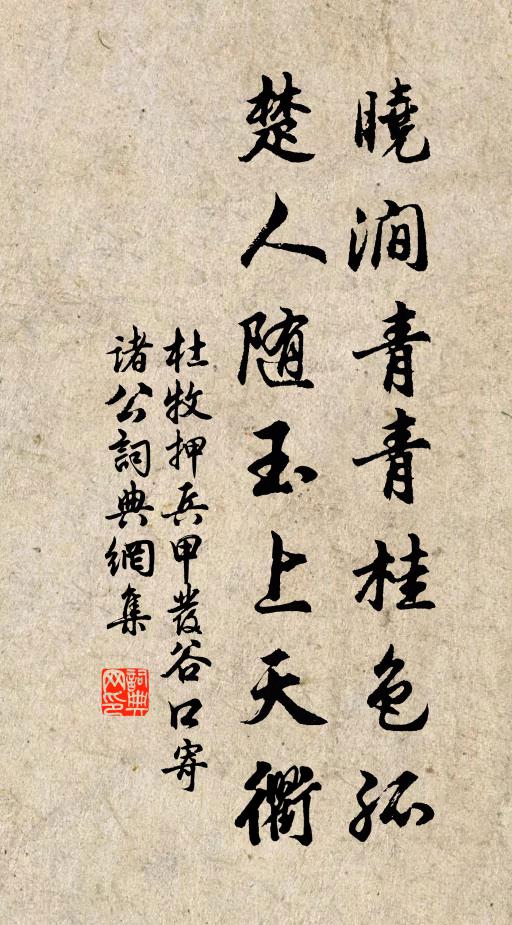 曉澗青青桂色孤
楚人随玉上天衢
杜牧押兵甲發谷口寄
諸公詞典網集
詞典网印